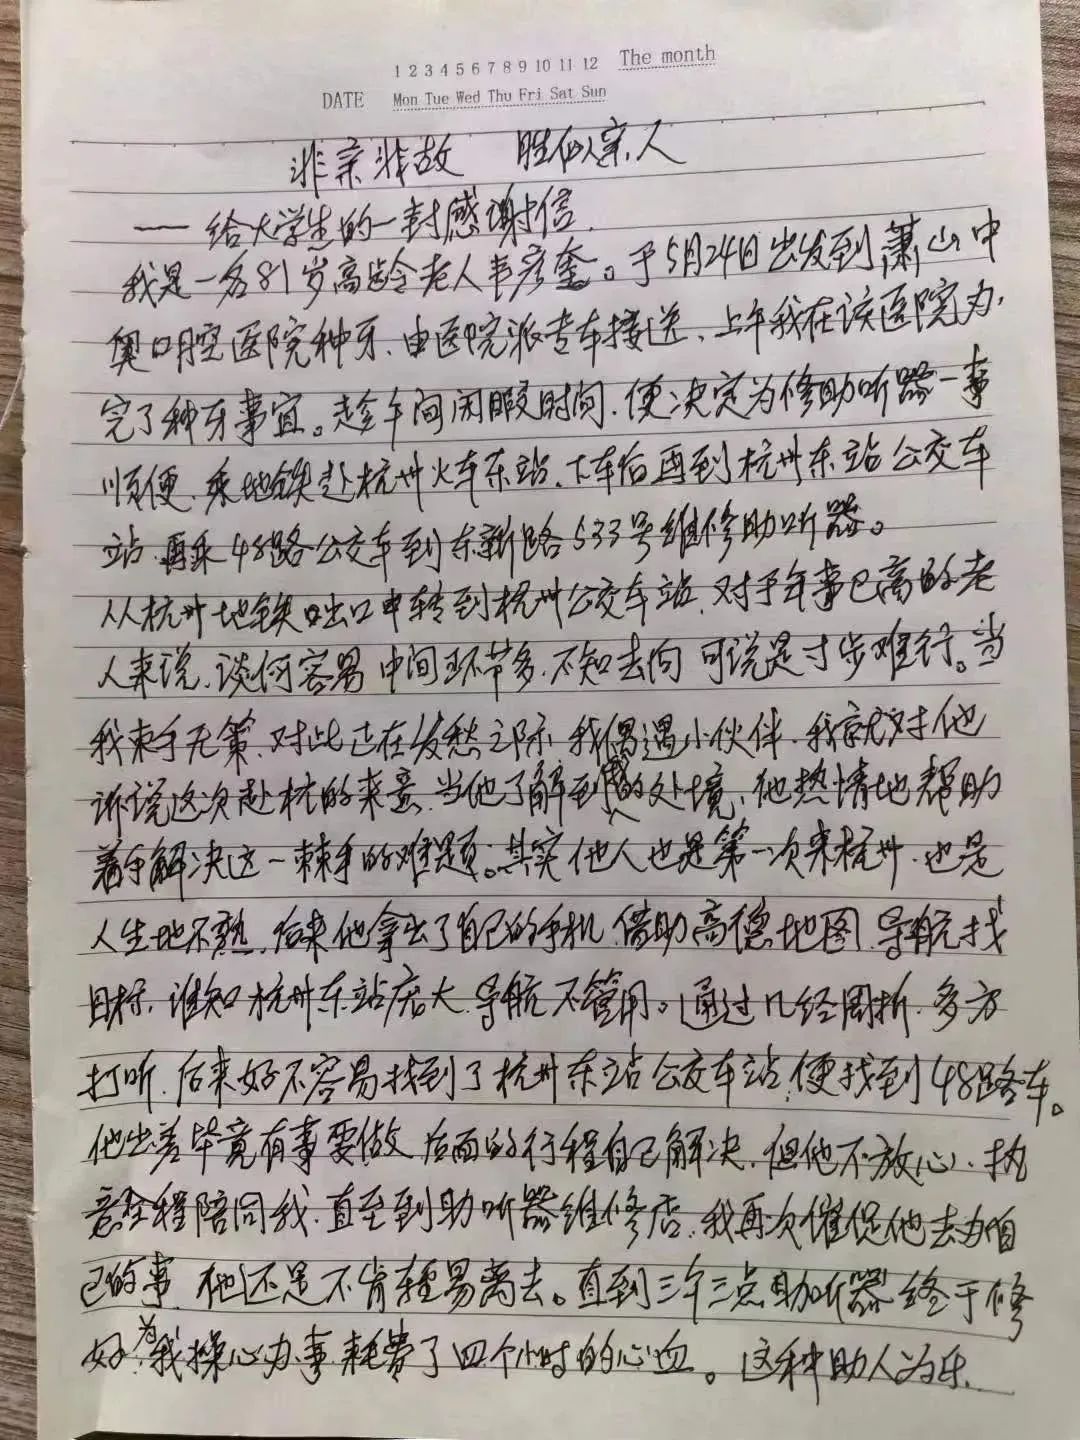 1 2 3 4 5 6 7 8 9 10 11 12 The month
DATE Mon Tue Wed Thu Fri Sat Sun
非亲非故 胜似亲人
——给大学生的一封感谢信
我是一名81岁高龄老人韦彦奎。于5月24日出发到萧山中
奥口腔医院种牙、由医院派专车接送、上午我在该医院办
完了种牙事宜。趁午间闲暇时间,便决定为修助听器一事
顺便、乘地铁赴杭州火车东站、下车后再到杭州东站公交车
站、再乘48路公交车到东新路533号维修助听器。
从杭州地铁口出口中转到杭州公交车站、对于年事已高的老
人来说、谈何容易 中间环节多、不知去向 可说是寸步难行。当
我束手无策、对此正在发愁之际 我偶遇小伙伴、我就对他
诉说这次赴杭的来意、当他了解到我的处境、他热情地帮助
着手解决这一棘手的难题。其实他人也是第一次来杭州、也是
人生地不熟、后来他拿出了自己的手机、借助高德地图 导航找
目标、谁知杭州东站庞大、导航不管用。通过几经周折、多方
打听、后来好不容易找到了杭州东站公交车站、便找到48路车。
他出差毕竟有事要做 后面的行程自己解决、但他不放心、执
意全程陪同我、直至到助听器维修店、我再次催促他去办自
己的事、他还是不肯轻易离去。直到三午三点助听器终于修
好、为我操心办事、耗费了四个小时的心血。这种助人为乐